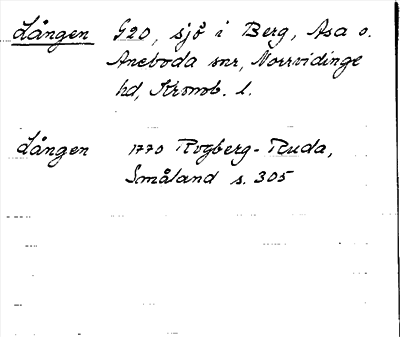 Lången G20, sjö i Berg, Asa o.
Aneboda snr, Norrvidinge
hd, Kronob. l.
Lången 1770 Rogberg-Ruda,
Småland s. 305